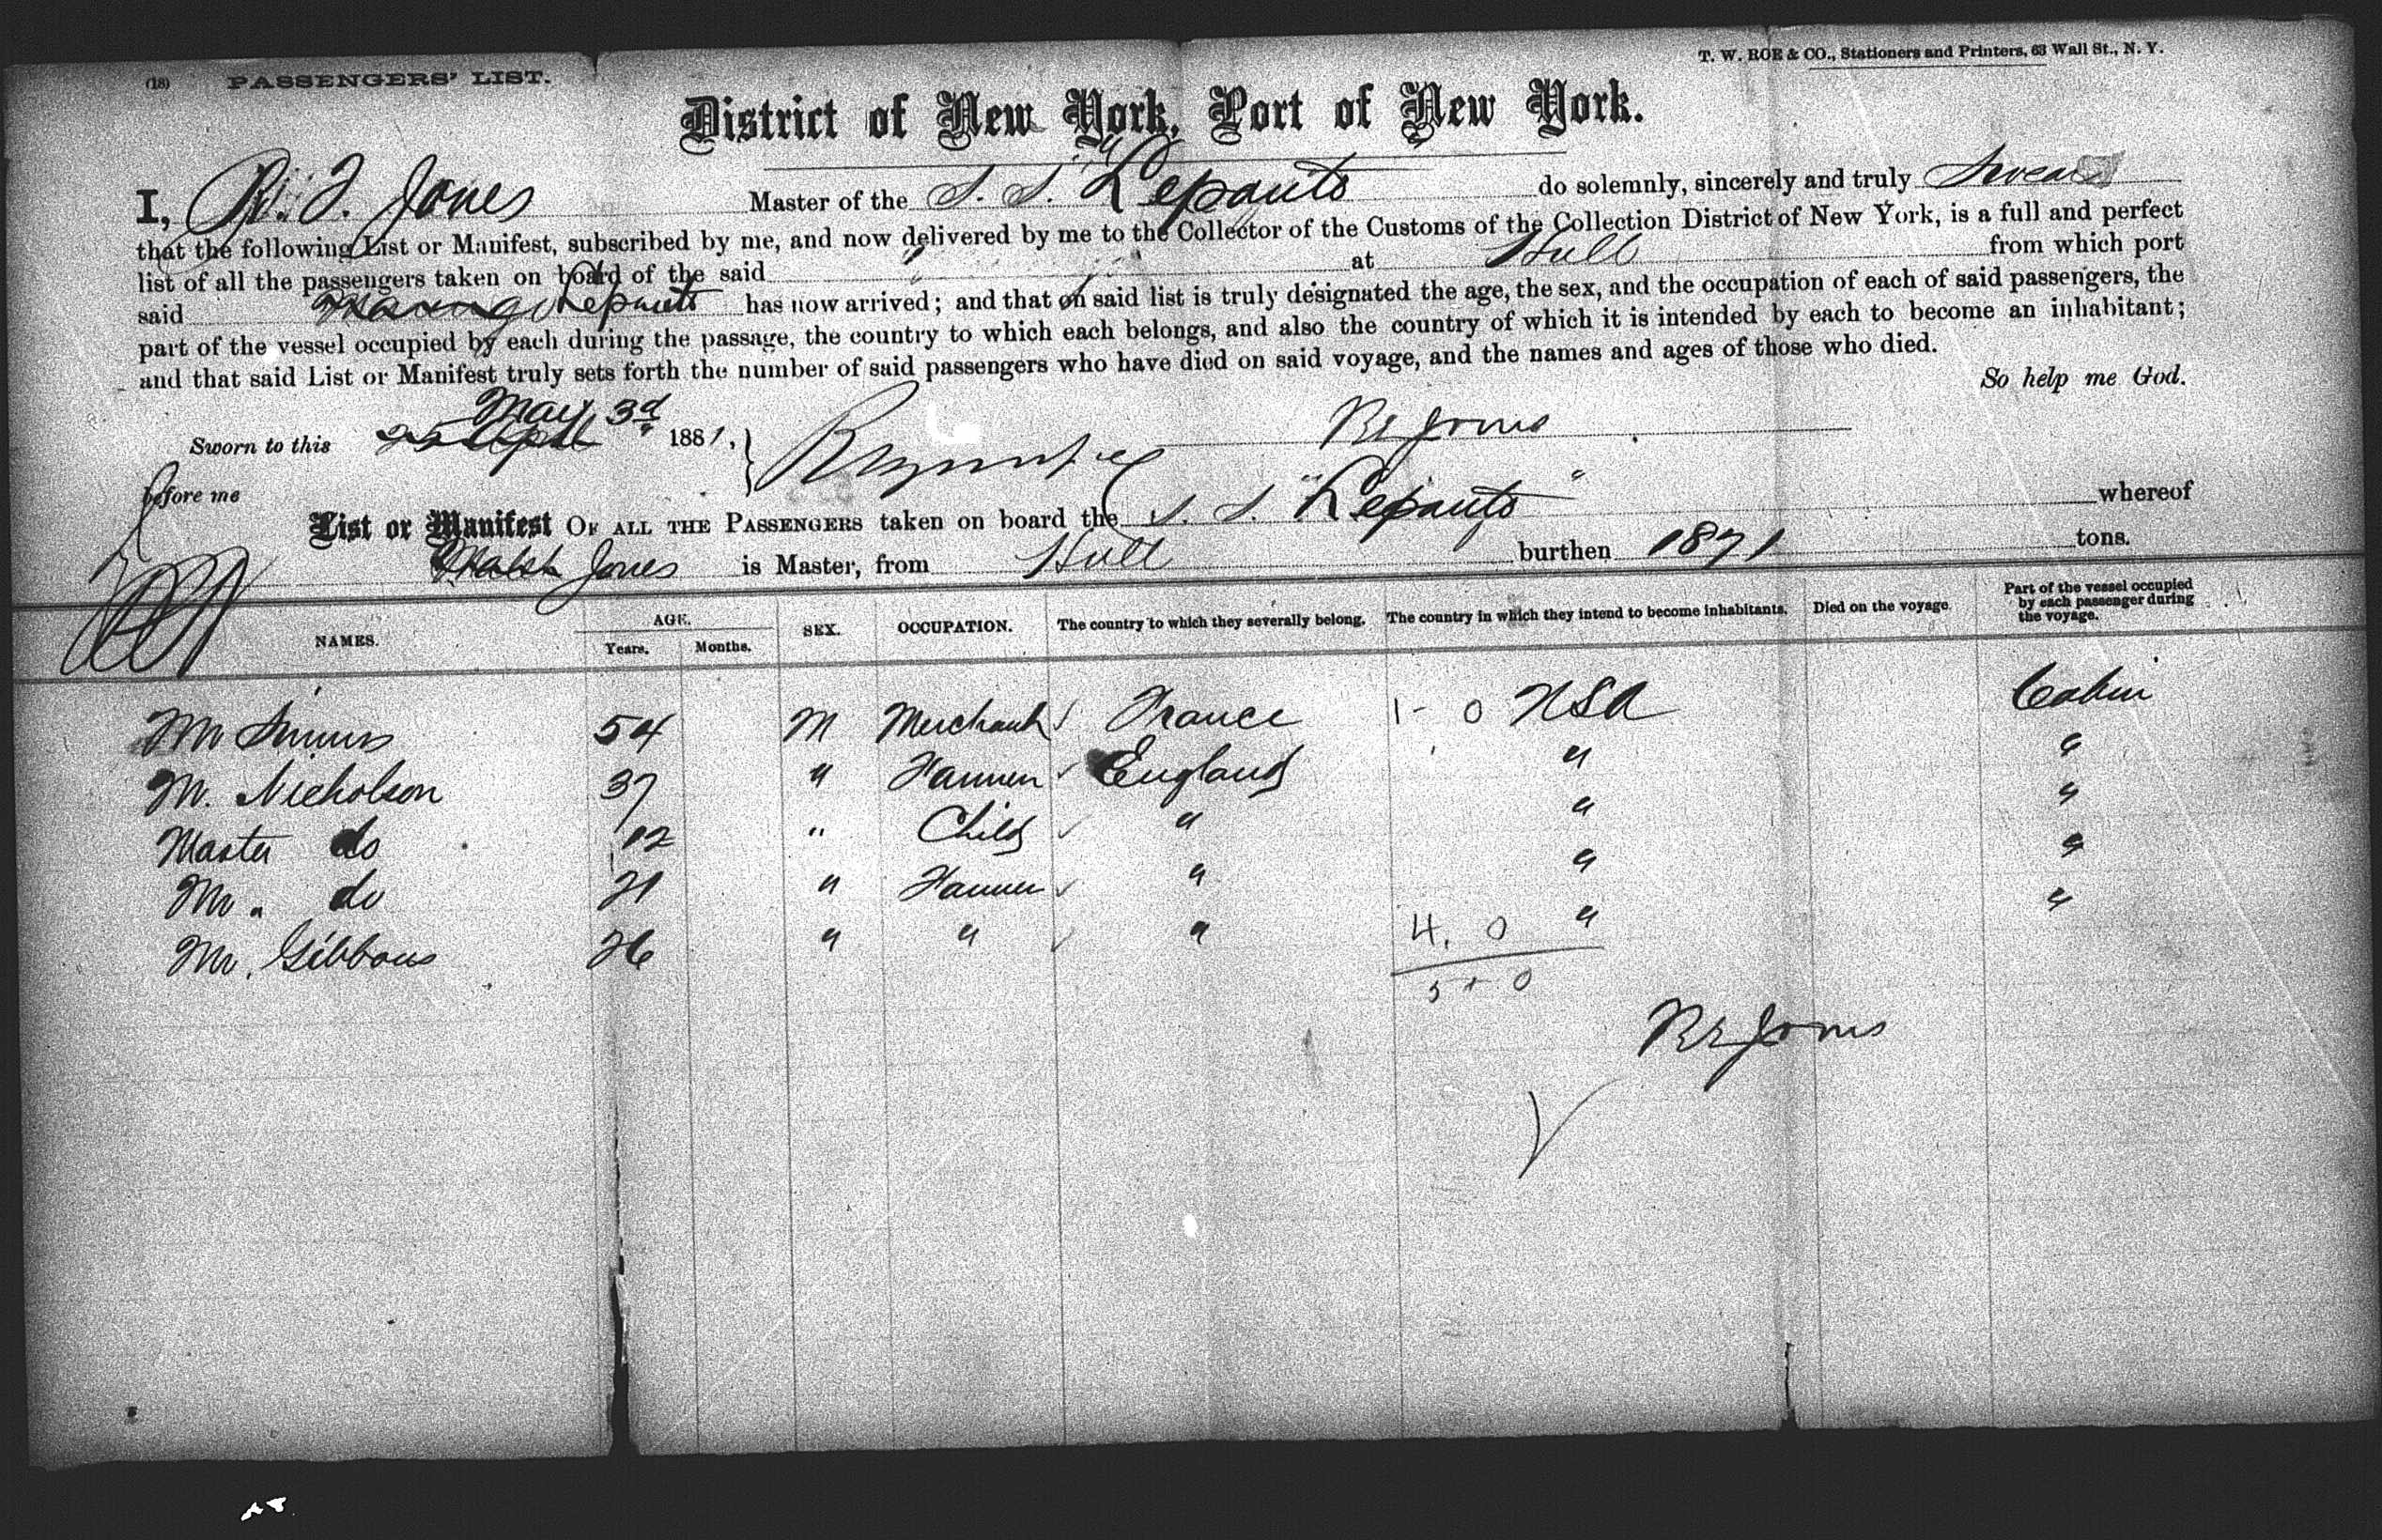 (18) PASSENGERS' LIST.
T. W. ROE & CO., Stationers and Printers, 63 Wall St., N. Y.
District of New York, Port of New York.
I, Jones Master of the S. S. "Lepanto do solemnly, sincerely and truly Swear
that the following List or Manifest, subscribed by me, and now delivered by me to the Collector of the Customs of the Collection District of New York, is a full and perfect
list of all the passengers taken on board of the said at Hull from which port
said Lepanto has now arrived; and that on said list is truly designated the age, the sex, and the occupation of each of said passengers, the
part of the vessel occupied by each during the passage, the country to which each belongs, and also the country of which it is intended by each to become an inhabitant;
and that said List or Manifest truly sets forth the number of said passengers who have died on said voyage, and the names and ages of those who died.
So help me God.
Sworn to this May 3d 1881,
before me
List or Manifest OF ALL THE PASSENGERS taken on board the S. S. "Lepanto" whereof
Jones is Master, from Hull burthen 1871 tons.
NAMES. AGE. Years. Months. SEX. OCCUPATION. The country to which they severally belong. The country in which they intend to become inhabitants. Died on the voyage. Part of the vessel occupied by each passenger during the voyage.
Mr 54 M Merchant France 1 - 0 USA Cabin
M. Nicholson 37 " Farmer England " "
Master do 12 " Child " " "
Mr. do 21 " Farmer " " "
Mr. Gibbons 26 " " " 4. 0 " "
5 + 0